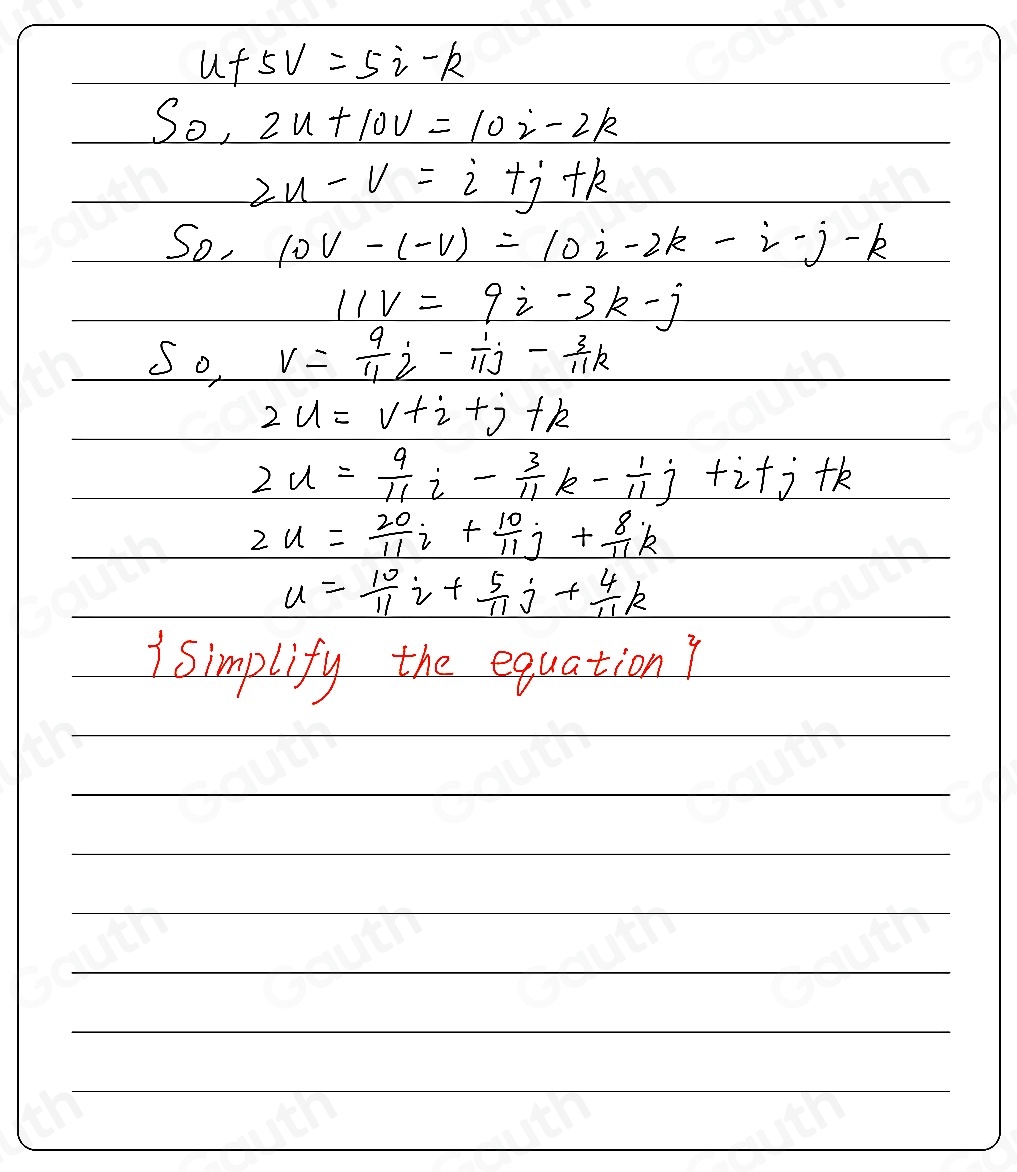 u+5v = 5i-k
So, 2u+10v = 10i-2k
2u-v = i+j+k
So, 10v-(-v) = 10i-2k-i-j-k
11v = 9i-3k-j
So, v= 9/11 i - 1/11 j - 3/11 k
2u = v+i+j+k
2u = 9/11 i - 3/11 k - 1/11 j +i+j+k
2u = 20/11 i + 10/11 j + 8/11 k
u = 10/11 i + 5/11 j + 4/11 k
{Simplify the equation}
Gauth